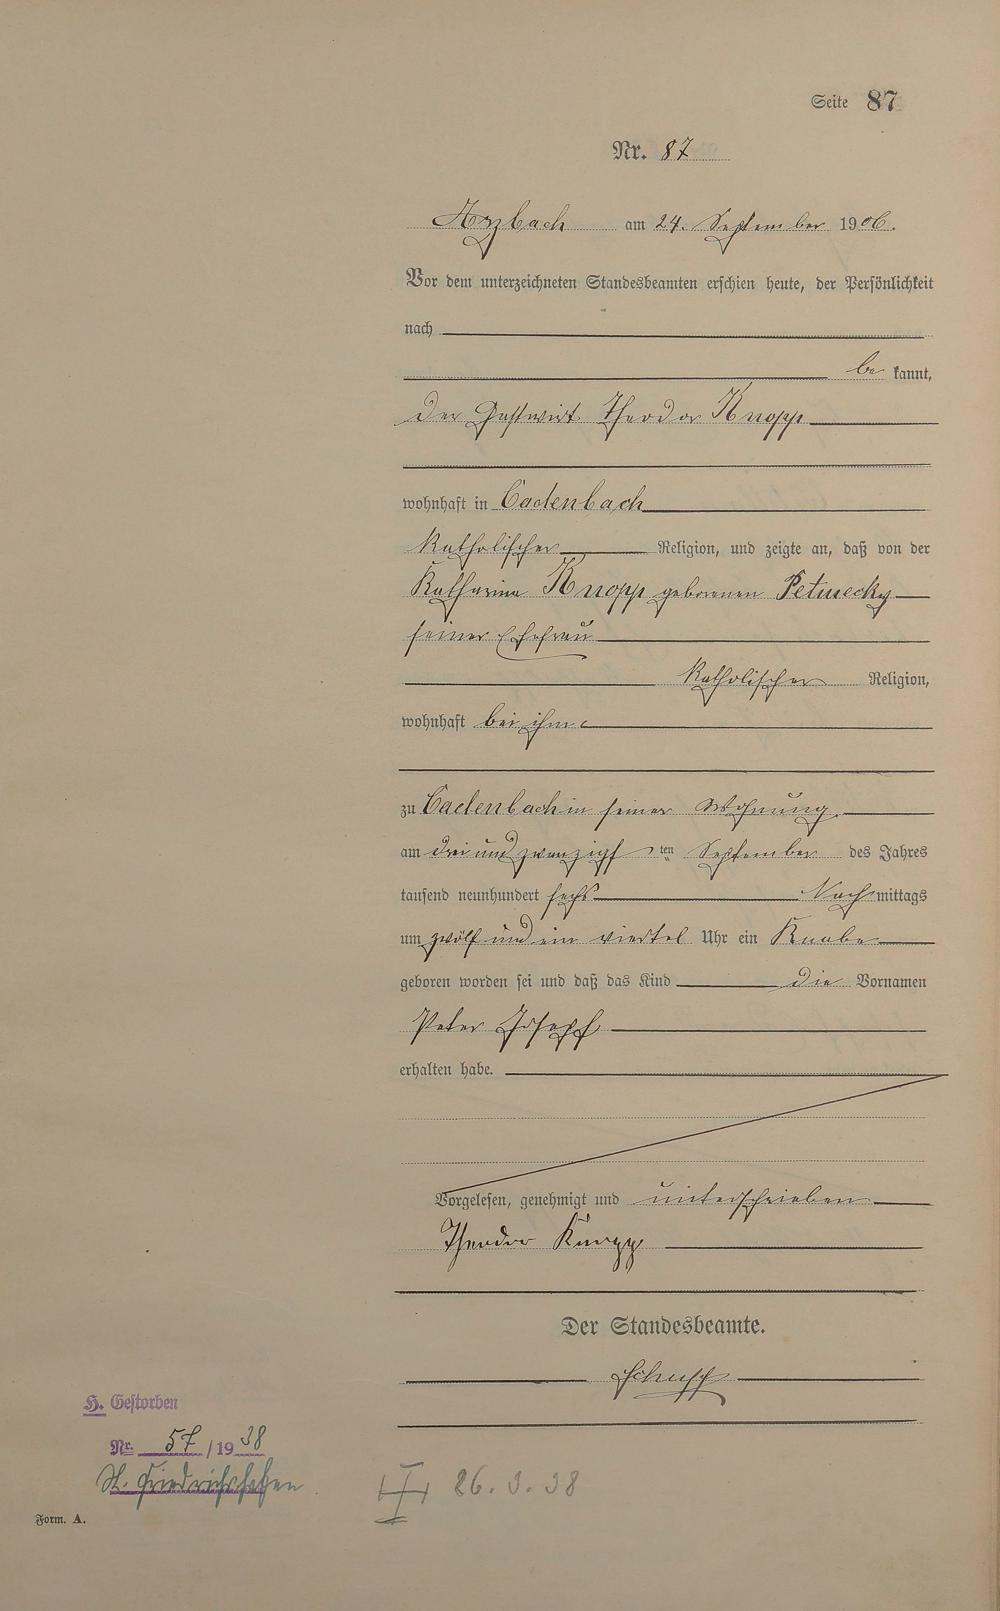 Seite 87
Nr. 87
Arzbach am 24. September 1906.
Vor dem unterzeichneten Standesbeamten erschien heute, der Persönlichkeit
nach
be kannt,
der Gastwirt Theodor Knopp
wohnhaft in Cadenbach
katholischer Religion, und zeigte an, daß von der
Katharina Knopp geborenen Petmecky
seiner Ehefrau
katholischer Religion,
wohnhaft bei ihm
zu Cadenbach in seiner Wohnung
am drei und zwanzigsten September des Jahres
tausend neunhundert sechs Nachmittags
um zwölf und ein viertel Uhr ein Knabe
geboren worden sei und daß das Kind die Vornamen
Peter Josepf
erhalten habe.
Vorgelesen, genehmigt und unterschrieben
Theodor Knopp
Der Standesbeamte.
H. Gestorben
Nr. 57/1938
St. Friedrichshafen
26.3.38
Form. A.